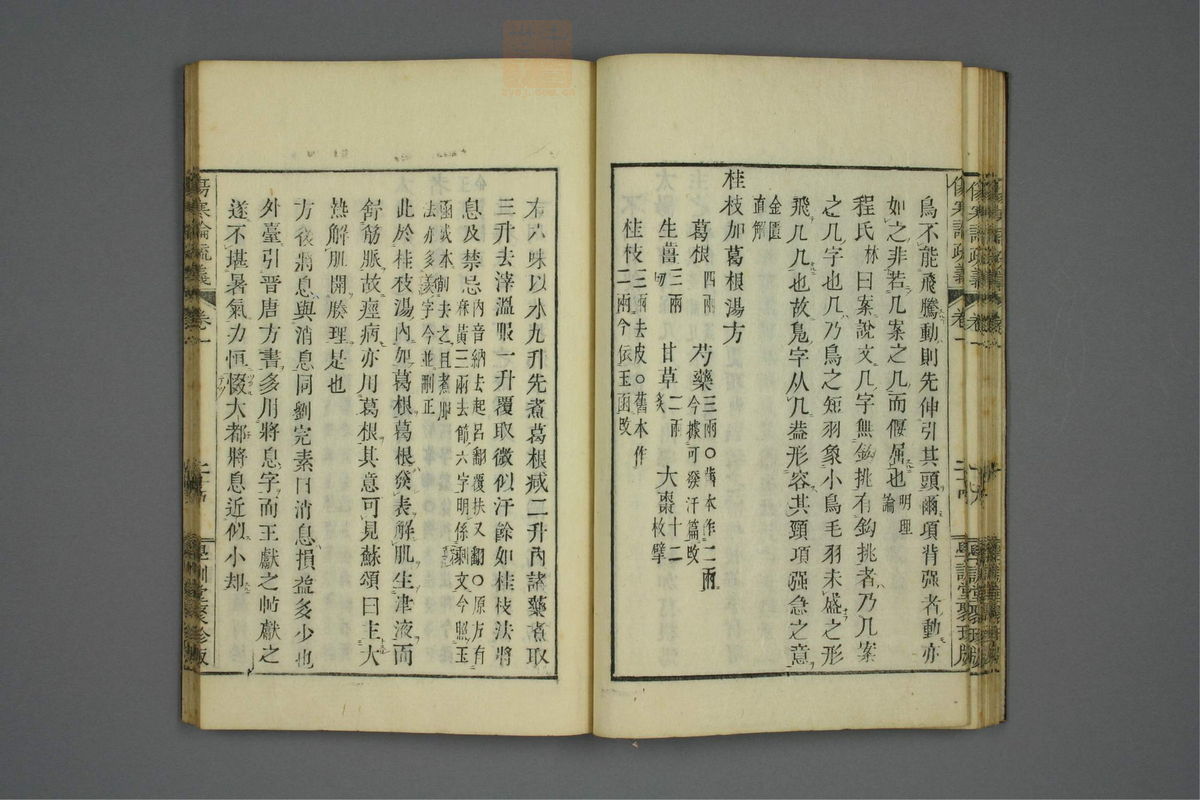 鳥不能飛騰動則先伸引其頭爾項背强者動亦
如之非若几案之几而偃屈也明理論
程氏林曰案說文几字無鉤挑有鉤挑者乃几案
之几字也几乃鳥之短羽象小鳥毛羽未盛之形
飛几几也故鳧字从几葢形容其頸項强急之意
金匱直解
桂枝加葛根湯方
葛根四兩 芍藥三兩○舊本作二兩今據可發汗篇改
生薑三兩切 甘草二兩炙 大棗十二枚擘
桂枝三兩去皮○舊本作二兩今依玉函改
右六味以水九升先煮葛根减二升內諸藥煮取
三升去滓溫服一升覆取微似汗餘如桂枝法將
息及禁忌內音納去起呂翻覆扶又翻○原方有麻黃三兩去節六字明係剩文今照玉函成本刪去之且煮服法亦多羨字今並刪正
此於桂枝湯內加葛根葛根發表解肌生津液而
舒筋脈故痙病亦用葛根其意可見蘇頌曰主大
熱解肌開腠理是也
方後將息與消息同劉完素曰消息損益多少也
外臺引晉唐方書多用將息字而王獻之帖獻之
遂不堪暑氣力恒惙大都將息近似小却
傷寒論疏義 卷一 學訓堂聚珍版